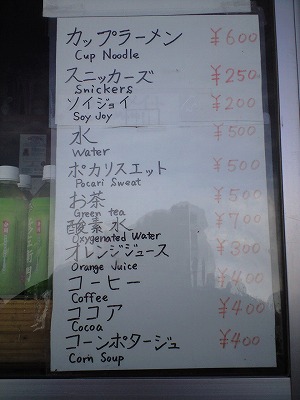 カップラーメン ¥600
Cup Noodle
スニッカーズ ¥250
Snickers
ソイジョイ ¥200
Soy Joy
水 ¥500
Water
ポカリスエット ¥500
Pocari Sweat
お茶 ¥500
Green tea
酸素水 ¥700
Oxygenated Water
オレンジジュース ¥300
Orange Juice
コーヒー ¥400
Coffee
ココア ¥400
Cocoa
コーンポタージュ ¥400
Corn Soup